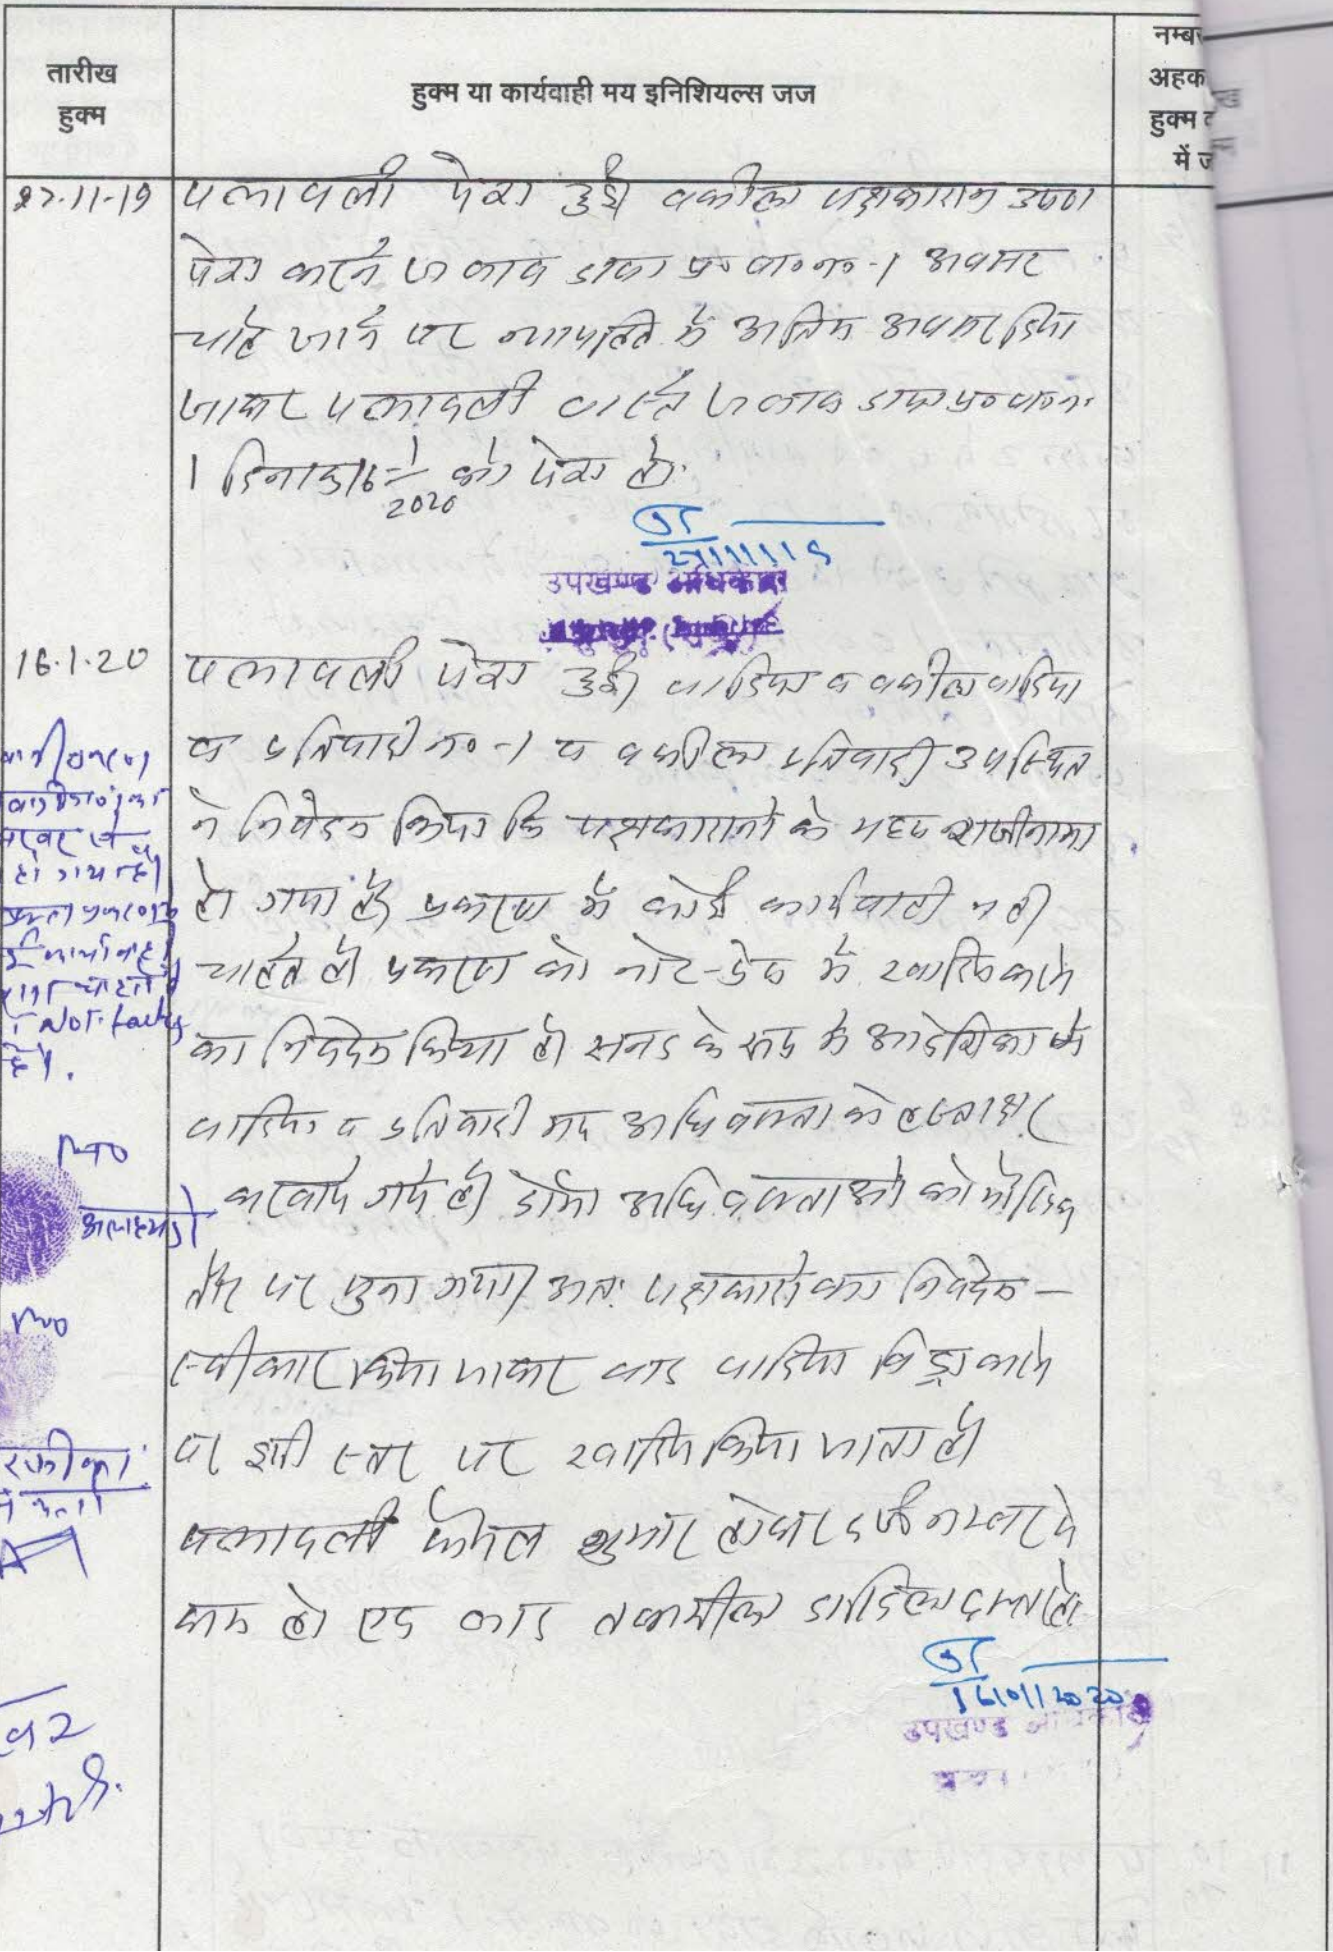 तारीख
हुक्म
हुक्म या कार्यवाही मय इनिशियल्स जज
नम्बर
अहक
हुक्म
में ज
27-11-19 पत्रावली पेश हुई वकील पक्षकारान उप०
पेश करने जवाब दावा प्र० वा० न०-1 अवसर
चाहे जाने पर न्यायहित में अंतिम अवसर दिया
जाकर पत्रावली वास्ते जवाब दावा प्र० वा० न०
1 दिनांक 16-1-2020 को पेश हो
27/11/19
उपखण्ड अधिकारी
16.1.20 पत्रावली पेश हुई वादिया व वकील वादिया
व प्रतिवादी न०-1 व वकील प्रतिवादी उपस्थित
ने निवेदन किया कि पक्षकारानो के मध्य राजीनामा
हो गया है प्रकरण में कोई कार्यवाही नही
चाहते है प्रकरण को नोट-प्रेस में खारिज करने
का निवेदन किया है सनद के रूप में आदेशिका पर
वादिया व प्रतिवादी मय अधिवक्ता के हस्ताक्षर
करवाये गये है दोनो अधिवक्ताओ को मौखिक
तौर पर सुना गया अतः पक्षकारो का निवेदन
स्वीकार किया जाकर वाद वादिया विड्रा करने
पर इसी स्तर पर खारिज किया जाता है
पत्रावली फैसल शुमार होकर दर्ज नम्बर से
कम हो एवं बाद तकमील दाखिल दफ्तर हो
16/01/2020
उपखण्ड अधिकारी
हो गया है
Not
है।